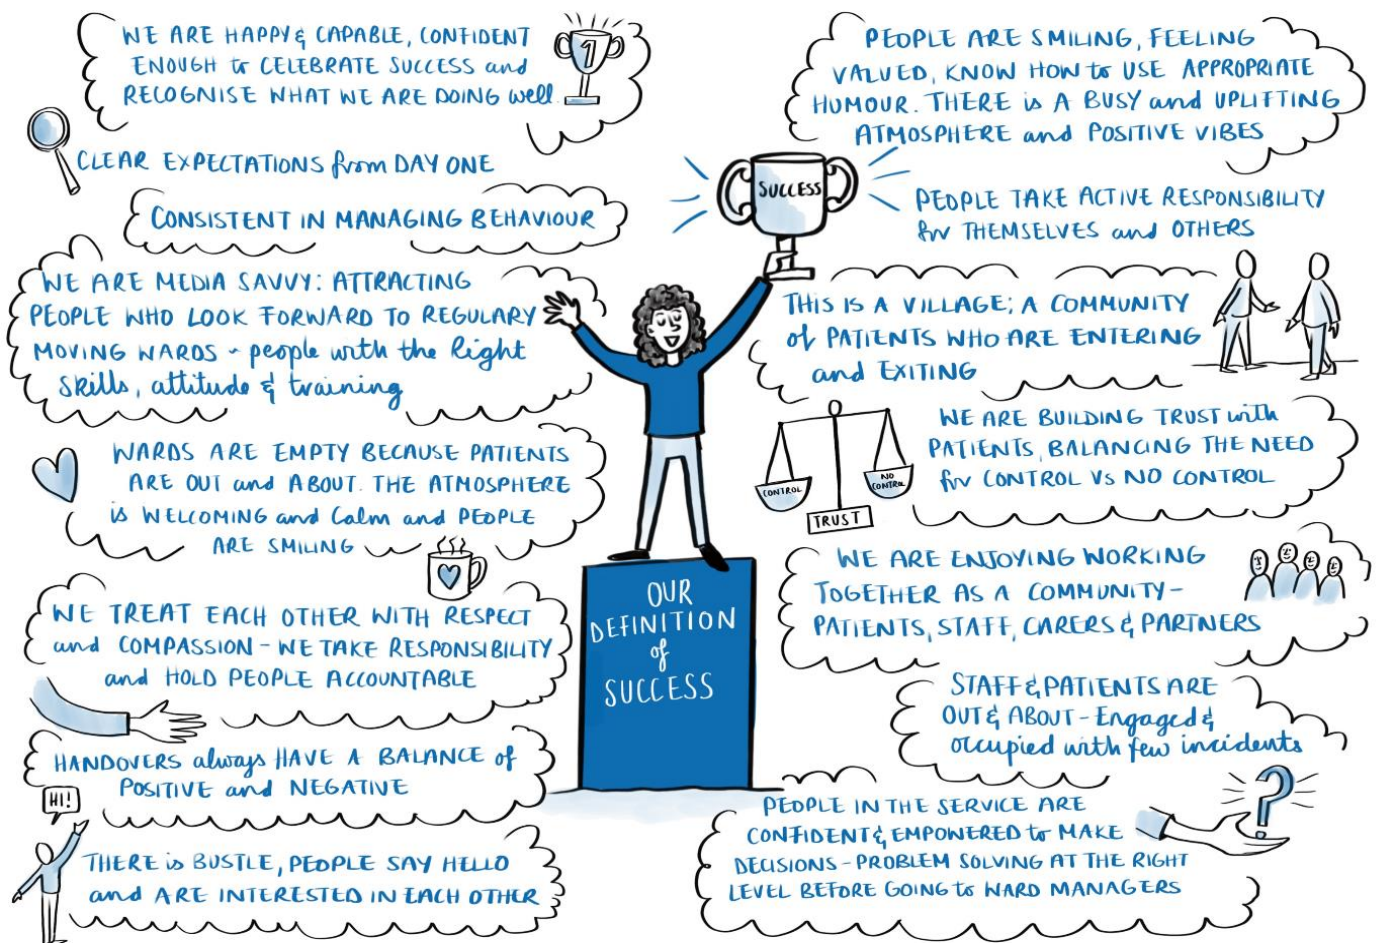 WE ARE HAPPY & CAPABLE, CONFIDENT
ENOUGH to CELEBRATE SUCCESS and
RECOGNISE WHAT WE ARE DOING well.
1
CLEAR EXPECTATIONS from DAY ONE
CONSISTENT IN MANAGING BEHAVIOUR
WE ARE MEDIA SAVVY: ATTRACTING
PEOPLE WHO LOOK FORWARD TO REGULARY
MOVING WARDS - people with the Right
Skills, attitude & training
WARDS ARE EMPTY BECAUSE PATIENTS
ARE OUT and ABOUT. THE ATMOSPHERE
is WELCOMING and Calm and PEOPLE
ARE SMILING
WE TREAT EACH OTHER WITH RESPECT
and COMPASSION - WE TAKE RESPONSIBILITY
and HOLD PEOPLE ACCOUNTABLE
HANDOVERS always HAVE A BALANCE of
POSITIVE and NEGATIVE
HI!
THERE is BUSTLE, PEOPLE SAY HELLO
and ARE INTERESTED IN EACH OTHER
SUCCESS
OUR
DEFINITION
of
SUCCESS
PEOPLE ARE SMILING, FEELING
VALUED, KNOW HOW to USE APPROPRIATE
HUMOUR. THERE is A BUSY and UPLIFTING
ATMOSPHERE and POSITIVE VIBES
PEOPLE TAKE ACTIVE RESPONSIBILITY
for THEMSELVES and OTHERS
THIS IS A VILLAGE; A COMMUNITY
of PATIENTS WHO ARE ENTERING
and EXITING
WE ARE BUILDING TRUST with
PATIENTS, BALANCING THE NEED
for CONTROL Vs NO CONTROL
CONTROL
NO
CONTROL
TRUST
WE ARE ENJOYING WORKING
TOGETHER AS A COMMUNITY -
PATIENTS, STAFF, CARERS & PARTNERS
STAFF & PATIENTS ARE
OUT & ABOUT - Engaged &
occupied with few incidents
?
PEOPLE IN THE SERVICE ARE
CONFIDENT & EMPOWERED to MAKE
DECISIONS - PROBLEM SOLVING AT THE RIGHT
LEVEL BEFORE GOING to WARD MANAGERS